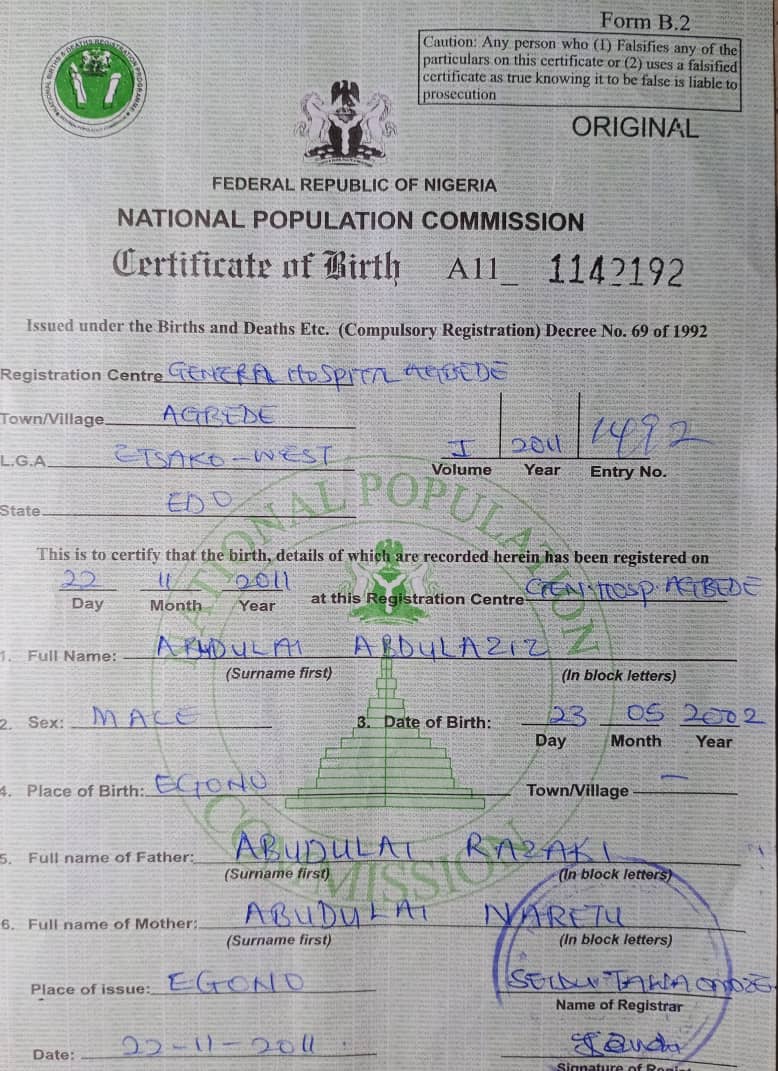 Form B.2
Caution: Any person who (1) Falsifies any of the
particulars on this certificate or (2) uses a falsified
certificate as true knowing it to be false is liable to
prosecution
ORIGINAL
FEDERAL REPUBLIC OF NIGERIA
NATIONAL POPULATION COMMISSION
Certificate of Birth A11_ 1142192
Issued under the Births and Deaths Etc. (Compulsory Registration) Decree No. 69 of 1992
Registration Centre GENERAL HOSPITAL AGBEDE
Town/Village AGBEDE
L.G.A. ETSAKO-WEST
I 2011 1492
Volume Year Entry No.
State EDO
This is to certify that the birth, details of which are recorded herein has been registered on
22 11 2011 at this Registration Centre GEN. HOSP. AGBEDE
Day Month Year
1. Full Name: ABUDULAI ABDULAZIZ
(Surname first) (In block letters)
2. Sex: MALE 3. Date of Birth: 23 05 2002
Day Month Year
4. Place of Birth: EGONO Town/Village —
5. Full name of Father: ABUDULAI RAZAKI
(Surname first) (In block letters)
6. Full name of Mother: ABUDULAI NARETU
(Surname first) (In block letters)
Place of issue: EGONO
Name of Registrar
Date: 22-11-2011
Signature of
NATIONAL POPULATION COMMISSION